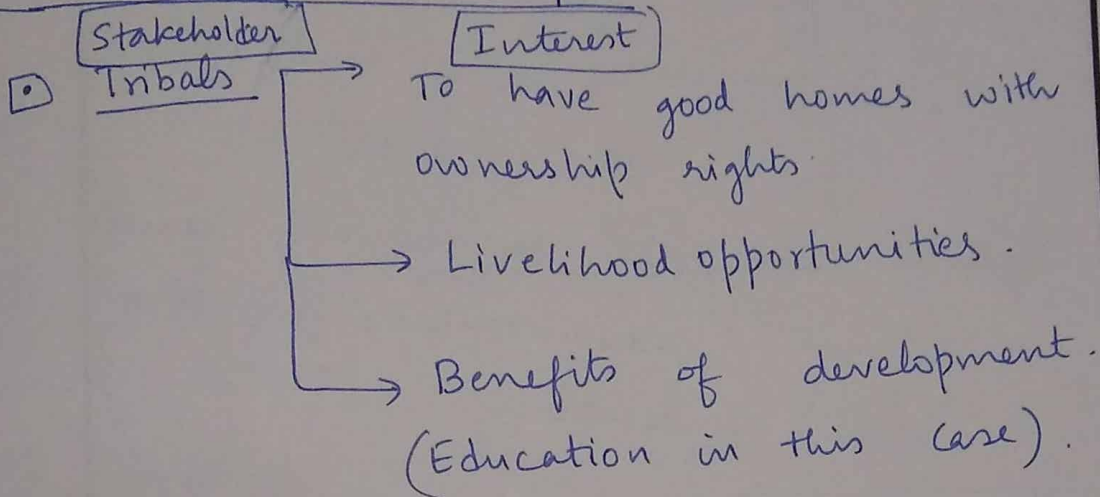 Stakeholder Interest
Tribals To have good homes with
ownership rights.
Livelihood opportunities.
Benefits of development.
(Education in this case).